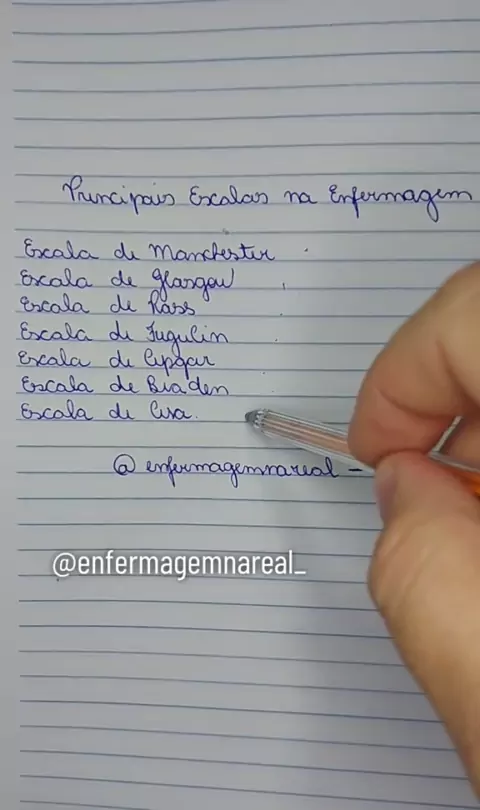 Principais Escalas na Enfermagem
Escala de Manchester
Escala de Glasgow
Escala de Rass
Escala de Fugulin
Escala de Apgar
Escala de Braden
Escala de
@enfermagemnareal_
@enfermagemnareal_